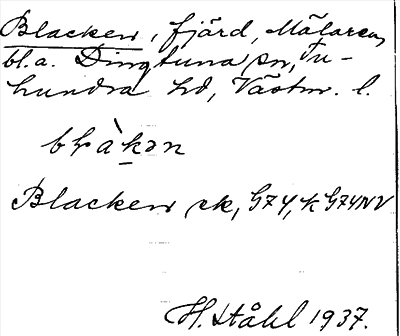 Blacken, fjärd, Mälaren,
bl.a. Dingtuna sn, Tu-
hundra hd, Västm. l.
blàkən
Blacken sk, G74, k G74NV
H. Ståhl 1937.